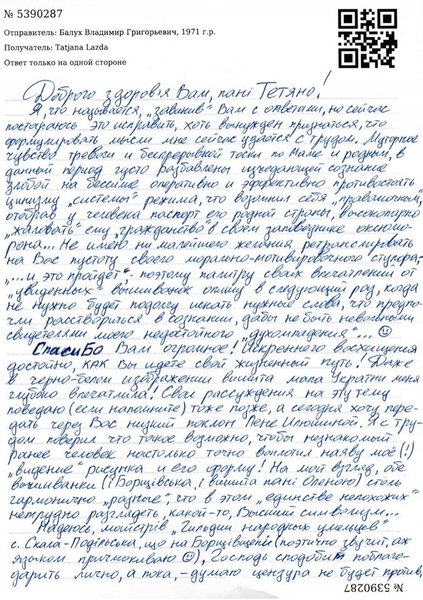 № 5390287
Отправитель: Балух Владимир Григорьевич, 1971 г.р.
Получатель: Tatjana Lazda
Ответ только на одной стороне
Доброго здоров'я Вам, пані Тетяно!
Я, что называется, „завинив" Вам с ответами, но сейчас
постараюсь это исправить, хоть вынужден признаться, что
формулировать мысли мне сейчас удаётся с трудом. Муторное
чувство тревоги и беспрерывной тоски по Маме и родным, в
данный период густо разбавлены изъедающей сознание
злобой на бессилие оперативно и эффективно противостоять
цинизму „системы" режима, что возомнил себя „правомочным",
отобрав у человека паспорт его родной страны, высокопарно
„жаловать" ему „гражданство" в своём заповеднике оксюмо-
рона... Не имею ни малейшего желания, ретранслировать
на Вас пустоту своего морально-мотивировочного ступора;
„...и это пройдёт" - поэтому палитру своих впечатлений от
„увиденных" вышиванок опишу в следующий раз, когда
не нужно будет подолгу искать нужные слова, что предпо-
чли расствориться в сознании, дабы не быть невольными
свидетелями моего недостойного „духомпадения"...
Спасибо Вам огромное! Искреннего восхищения
достойно, как Вы идёте свой жизненный путь! Даже
в черно-белом изображении вишита мапа України меня
глубоко впечатлила! Свои рассуждения на эту тему
поведаю (если напомните) тоже позже, а сегодня хочу пере-
дать через Вас низкий поклон Лене Ипошиной. Я с тру-
дом поверил что такое возможно, чтобы незнакомый
ранее человек настолько точно воплотил наяву моё (!)
„видение" рисунка и его форму! На мой взгляд, обе
вышиванки (і Борщівська, і вишита пані Оленою) столь
гармонично „разные", что в этом „единстве непохожих"
нетрудно разглядеть, какой-то, Высший символизм...
Надеюсь, майстрів „Гильдии народных умельцев"
с. Скала-Подільська, що на Борщівщені (поэтично звучит, аж
языком причмокиваю), Господь сподобит поблаго-
дарить лично, а пока, - думаю цензура не будет против,
№ 5390287